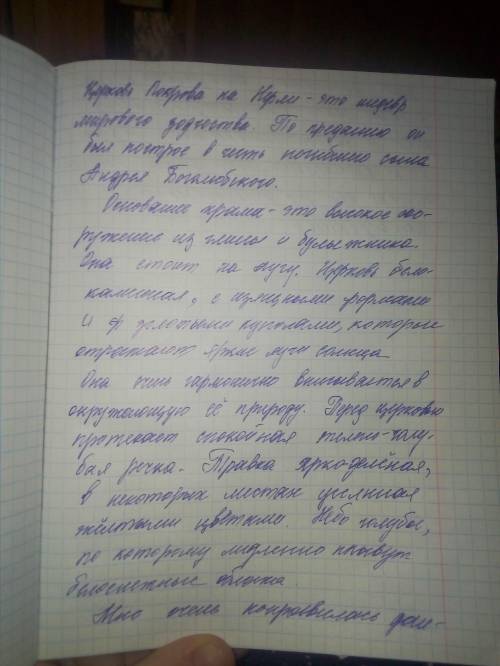 Церковь Покрова на Нерли - это шедевр
мирового зодчества. По преданию он
был построе в честь погибшего сына
Андрея Боголюбского.
Основание храма - это высокое соо-
ружение из глины и булыжника.
Она стоит на лугу. Церковь бело-
каменная, с изящными формами
и золотыми куполами, которые
отражают яркие лучи солнца
Она очень гармонично вписывается в
окружающую её природу. Перед церковью
протекает спокойная темно-голу-
бая речка. Травка ярко-зелёная,
в некоторых местах усеянная
жёлтыми цветками. Небо голубое,
по которому медленно плывут
белоснежные облака.
Мне очень понравилась